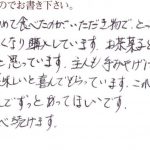 のでお書き下さい。
めて食べたのがいただき物で、とっ
くなり購入しています。お茶菓子を
と思っています。主人も手みやげに
味しいと喜んでもらっています。これ
んでずっとあってほしいです。
べ続けます。